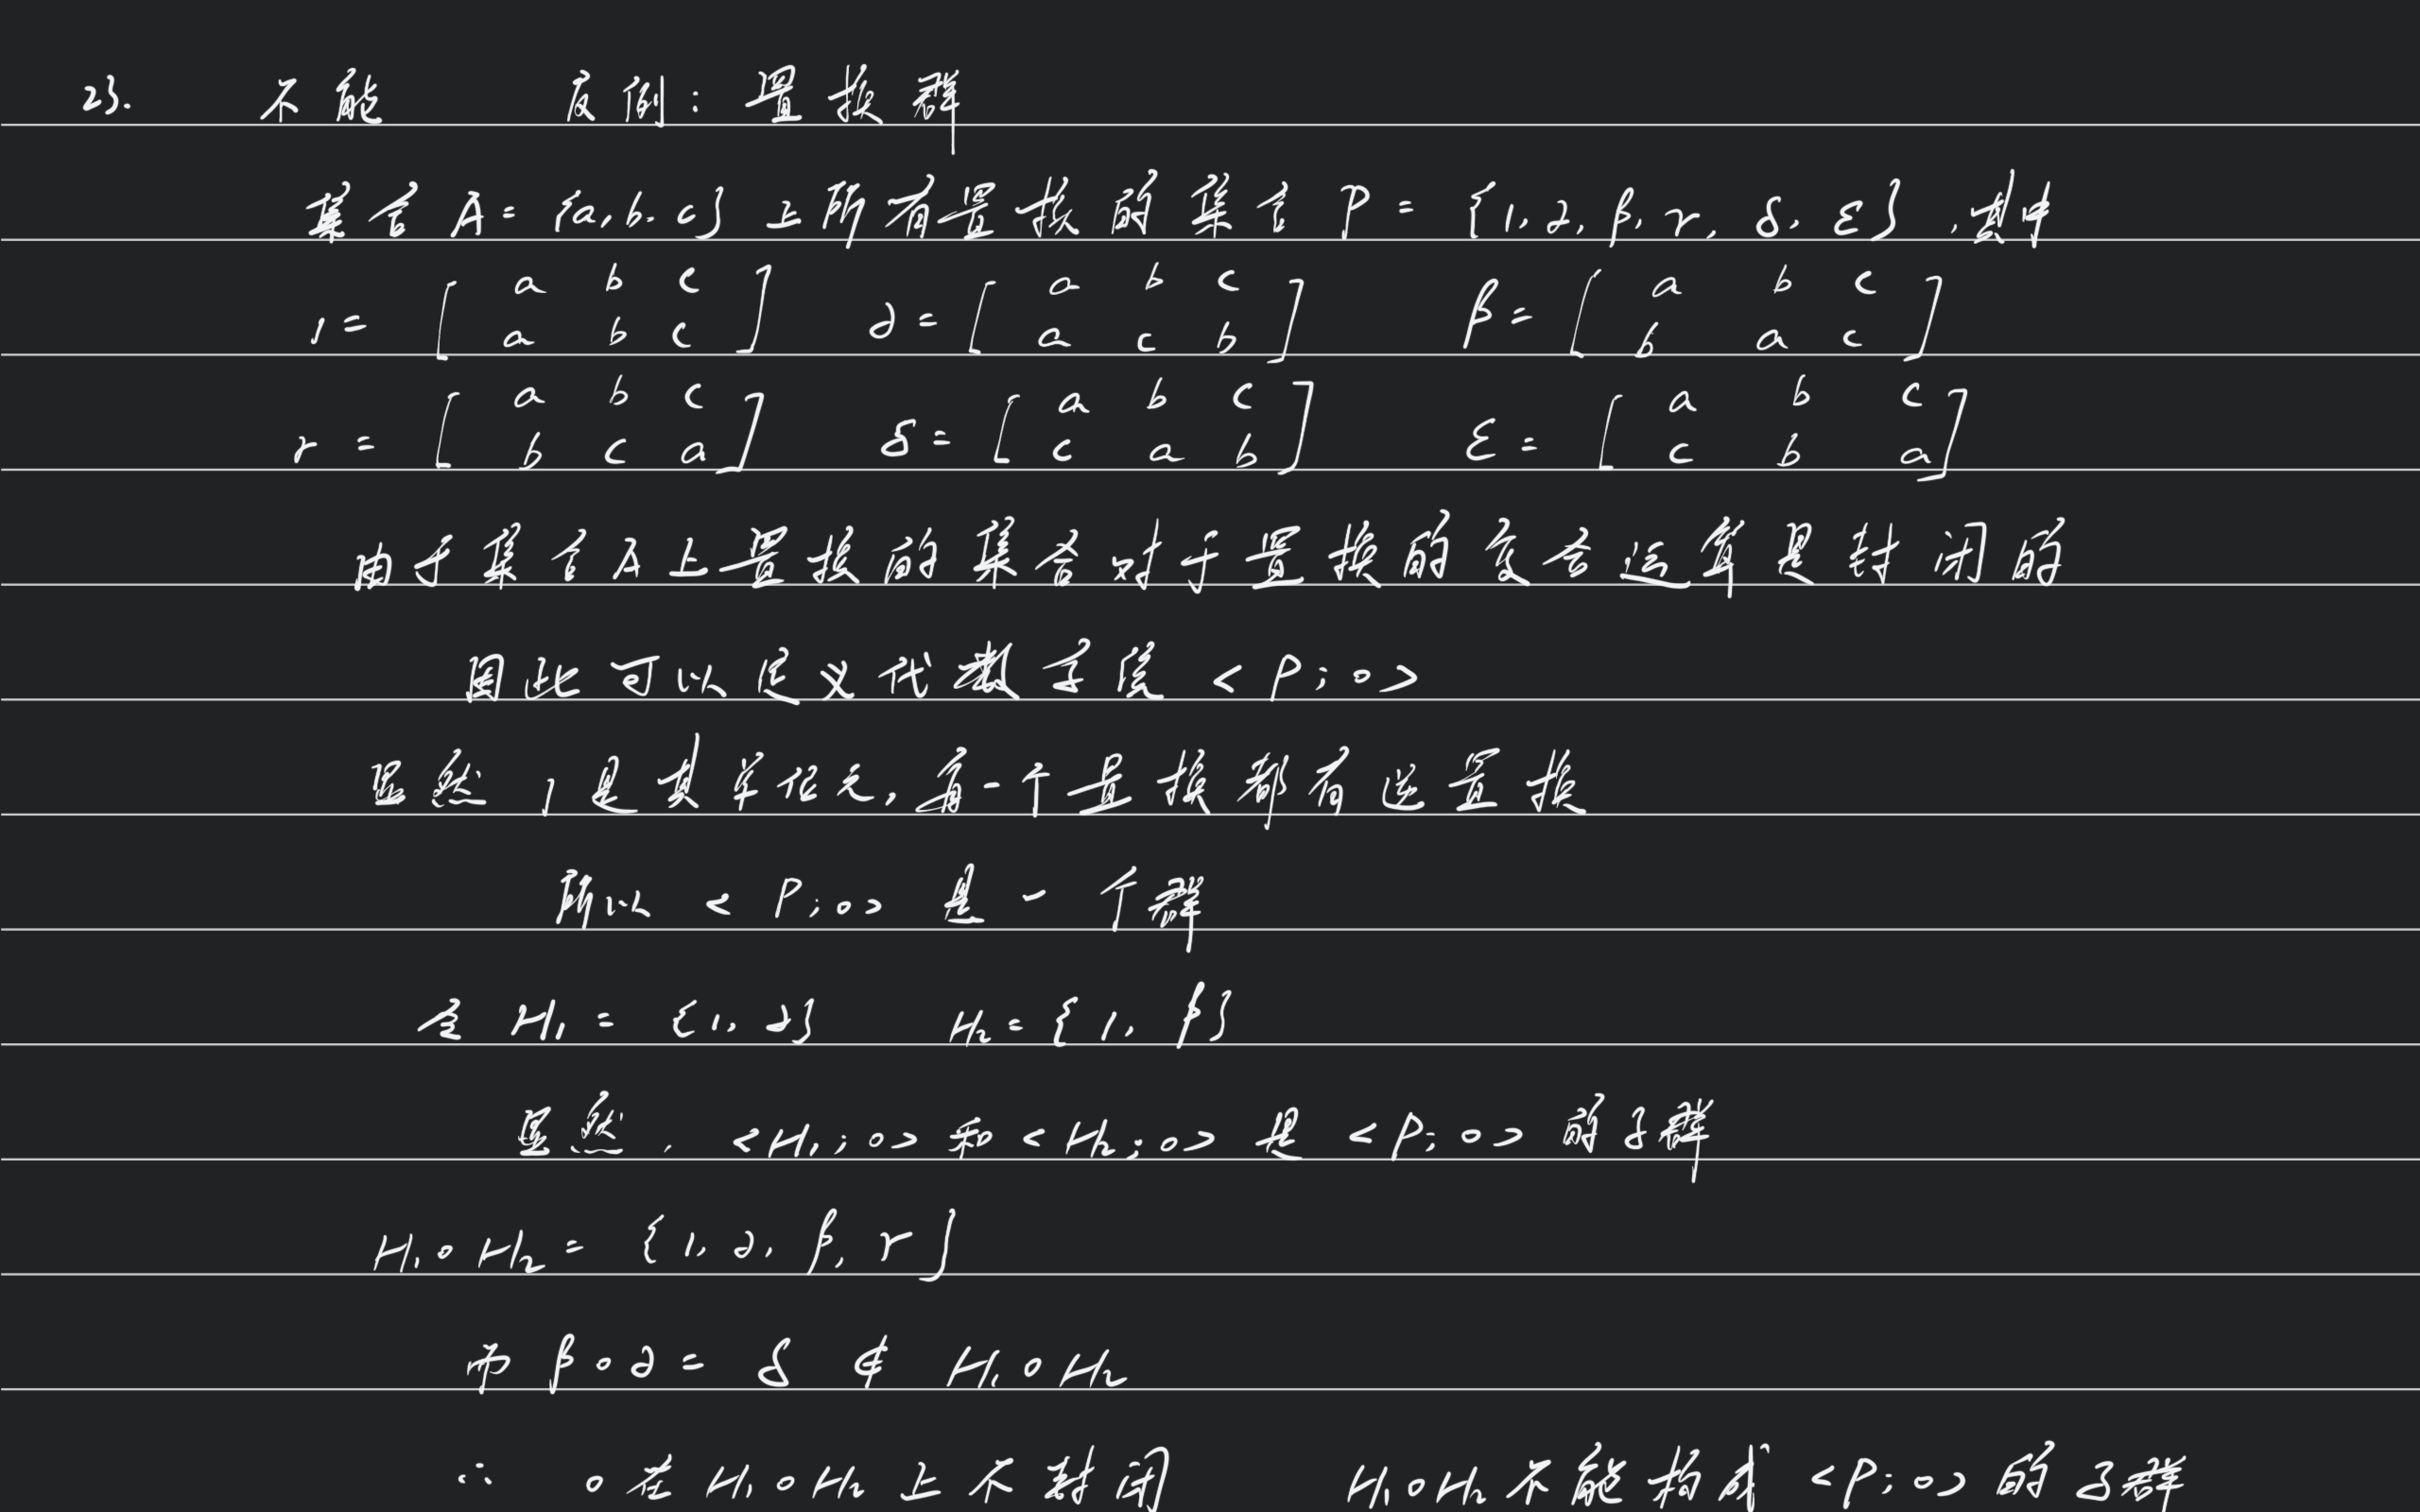 23. 不能 反例：置换群
集合 A = {a, b, c} 上所有置换的集合 P = {1, α, β, γ, δ, ε}，其中
1 = [a b c / a b c] α = [a b c / a c b] β = [a b c / b a c]
γ = [a b c / b c a] δ = [a b c / c a b] ε = [a b c / c b a]
由于集合A上置换的集合对于置换的复合运算是封闭的
因此可以定义代数系统 <P;∘>
显然 1 是其单位元，每一个置换都有逆置换
所以 <P;∘> 是一个群
令 H₁ = {1, α} H₂ = {1, β}
显然，<H₁;∘> 和 <H₂;∘> 是 <P;∘> 的子群
H₁∘H₂ = {1, α, β, γ}
而 β∘α = δ ∉ H₁∘H₂
∴ ∘在 H₁∘H₂ 上不封闭 H₁∘H₂ 不能构成 <P;∘> 的子群